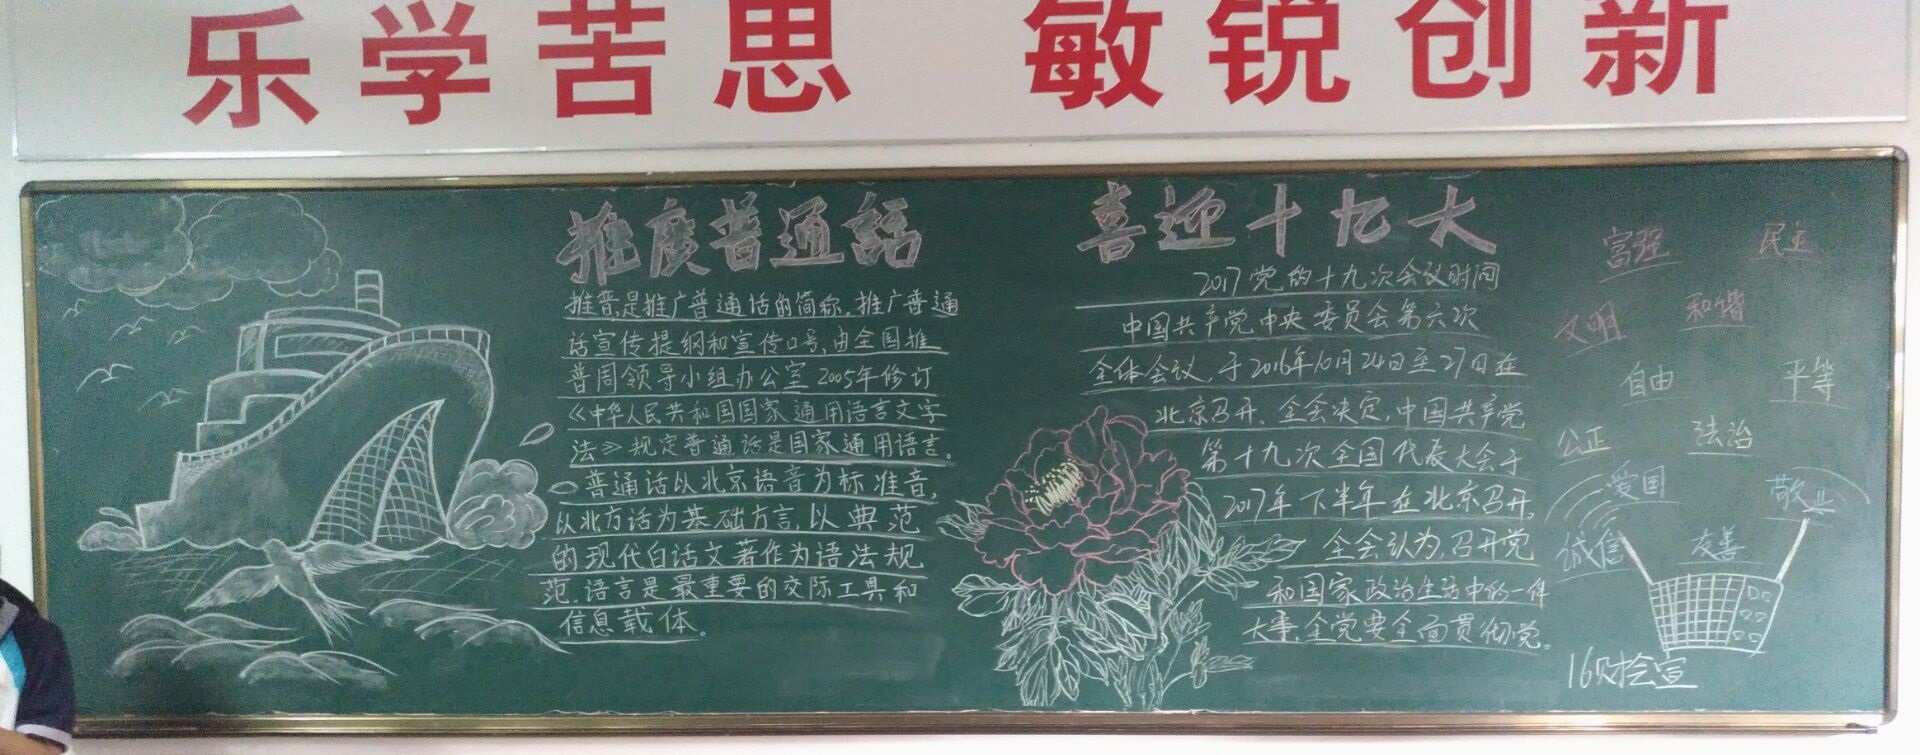 乐学苦思 敏锐创新
推廣普通話
推普,是推广普通话的简称。推广普通
话宣传提纲和宣传口号,由全国推
普周领导小组办公室2005年修订
《中华人民共和国国家通用语言文字
法》规定普通话是国家通用语言。
普通话以北京语音为标准音,
以北方话为基础方言,以典范
的现代白话文著作为语法规
范.语言是最重要的交际工具和
信息载体。
喜迎十九大
2017党的十九次会议时间
中国共产党中央委员会第六次
全体会议,于2016年10月24日至27日在
北京召开。全会决定,中国共产党
第十九次全国代表大会于
2017年下半年在北京召开,
全会认为,召开党
和国家政治生活中的一件
大事,全党要全面贯彻党。
富强 民主
文明 和谐
自由 平等
公正 法治
爱国 敬业
诚信 友善
16财会宣